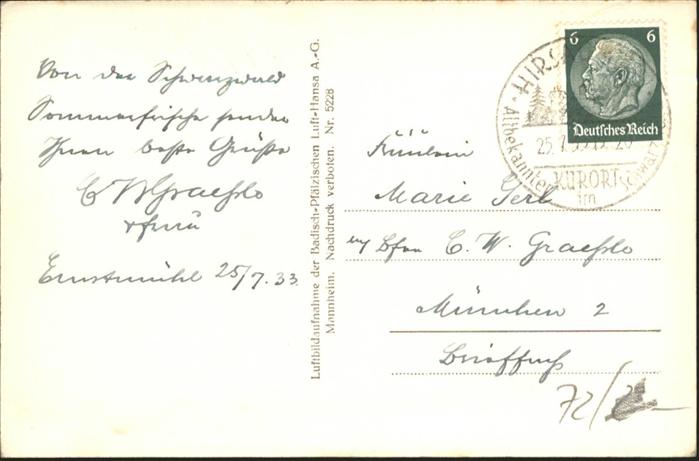 Von der Schwarzwald
Sommerfrische senden
Ihnen beste Grüße
C W Graeßlo
+ frau
Ernstmühl 25/7.33
Luftbildaufnahme der Badisch-Pfälzischen Luft-Hansa A.-G.
Mannheim. Nachdruck verboten. Nr. 5228
6 6
Deutsches Reich
HIRS
25.7.33
Altbekannter KURORT
im
Schwarz
Fräulein
Marie Gerl
C. W. Graeßlo
München 2
Brieffach
72/